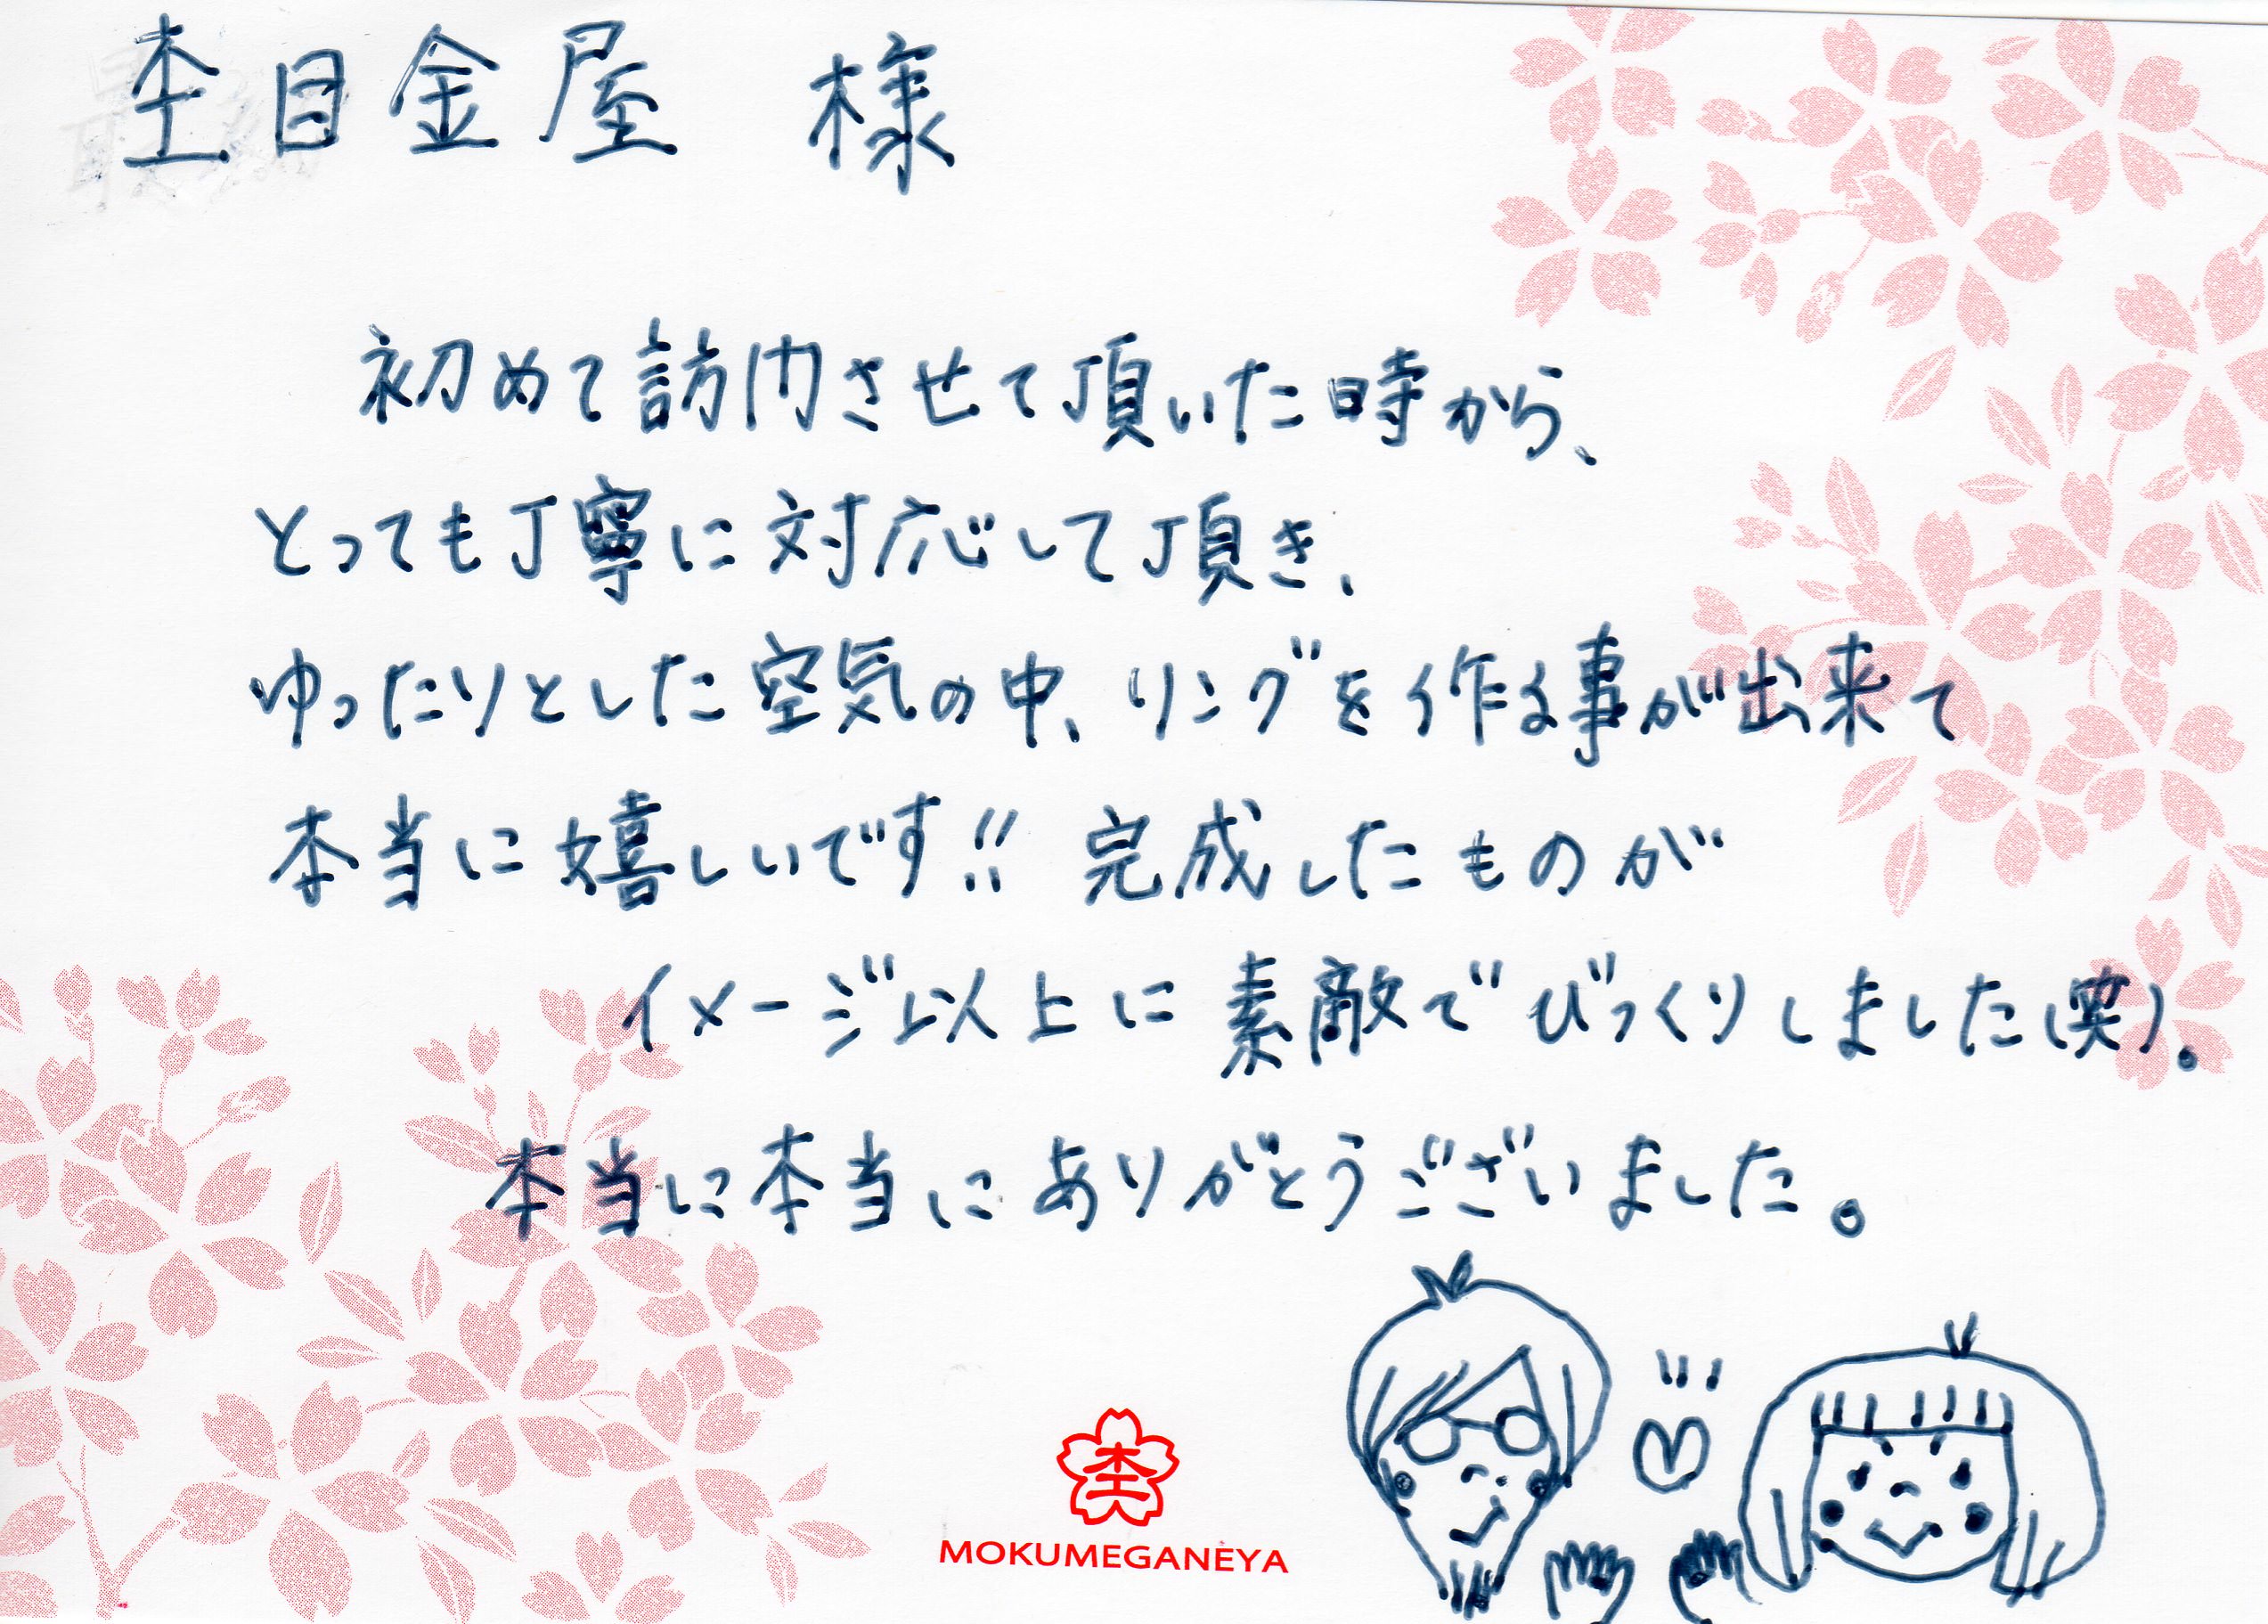 杢目金屋 様
初めて訪問させて頂いた時から、
とっても丁寧に対応して頂き、
ゆったりとした空気の中、リングを作る事が出来て
本当に嬉しいです!! 完成したものが
イメージ以上に素敵でびっくりしました(笑)。
本当に本当にありがとうございました。
杢
MOKUMEGANEYA